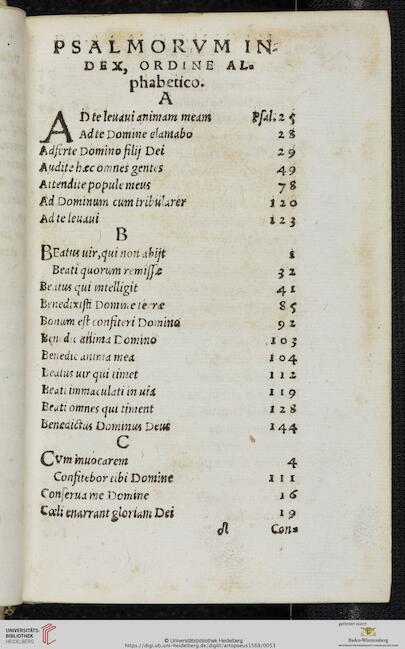 PSALMORVM IN=
DEX, ORDINE AL=
phabetico.
A
AD te leuaui animam meam Psal.25
Ad te Domine clamabo 28
Adferte Domino filij Dei 29
Audite hæc omnes gentes 49
Attendite popule meus 78
Ad Dominum cum tribularer 120
Ad te leuaui 123
B
BEatus uir, qui non abijt 1
Beati quorum remissæ 32
Beatus qui intelligit 41
Benedixisti Domine terræ 85
Bonum est confiteri Domino 92
Benedic anima Domino 103
Benedic anima mea 104
Beatus uir qui timet 112
Beati immaculati in uia 119
Beati omnes qui timent 128
Benedictus Dominus Deus 144
C
CVm inuocarem 4
Confitebor tibi Domine 111
Conserua me Domine 16
Cœli enarrant gloriam Dei 19
Con=
UNIVERSITÄTS-
BIBLIOTHEK
HEIDELBERG
© Universitätsbibliothek Heidelberg
https://digi.ub.uni-heidelberg.de/diglit/artopoeus1569/0053
gefördert durch
Baden-Württemberg